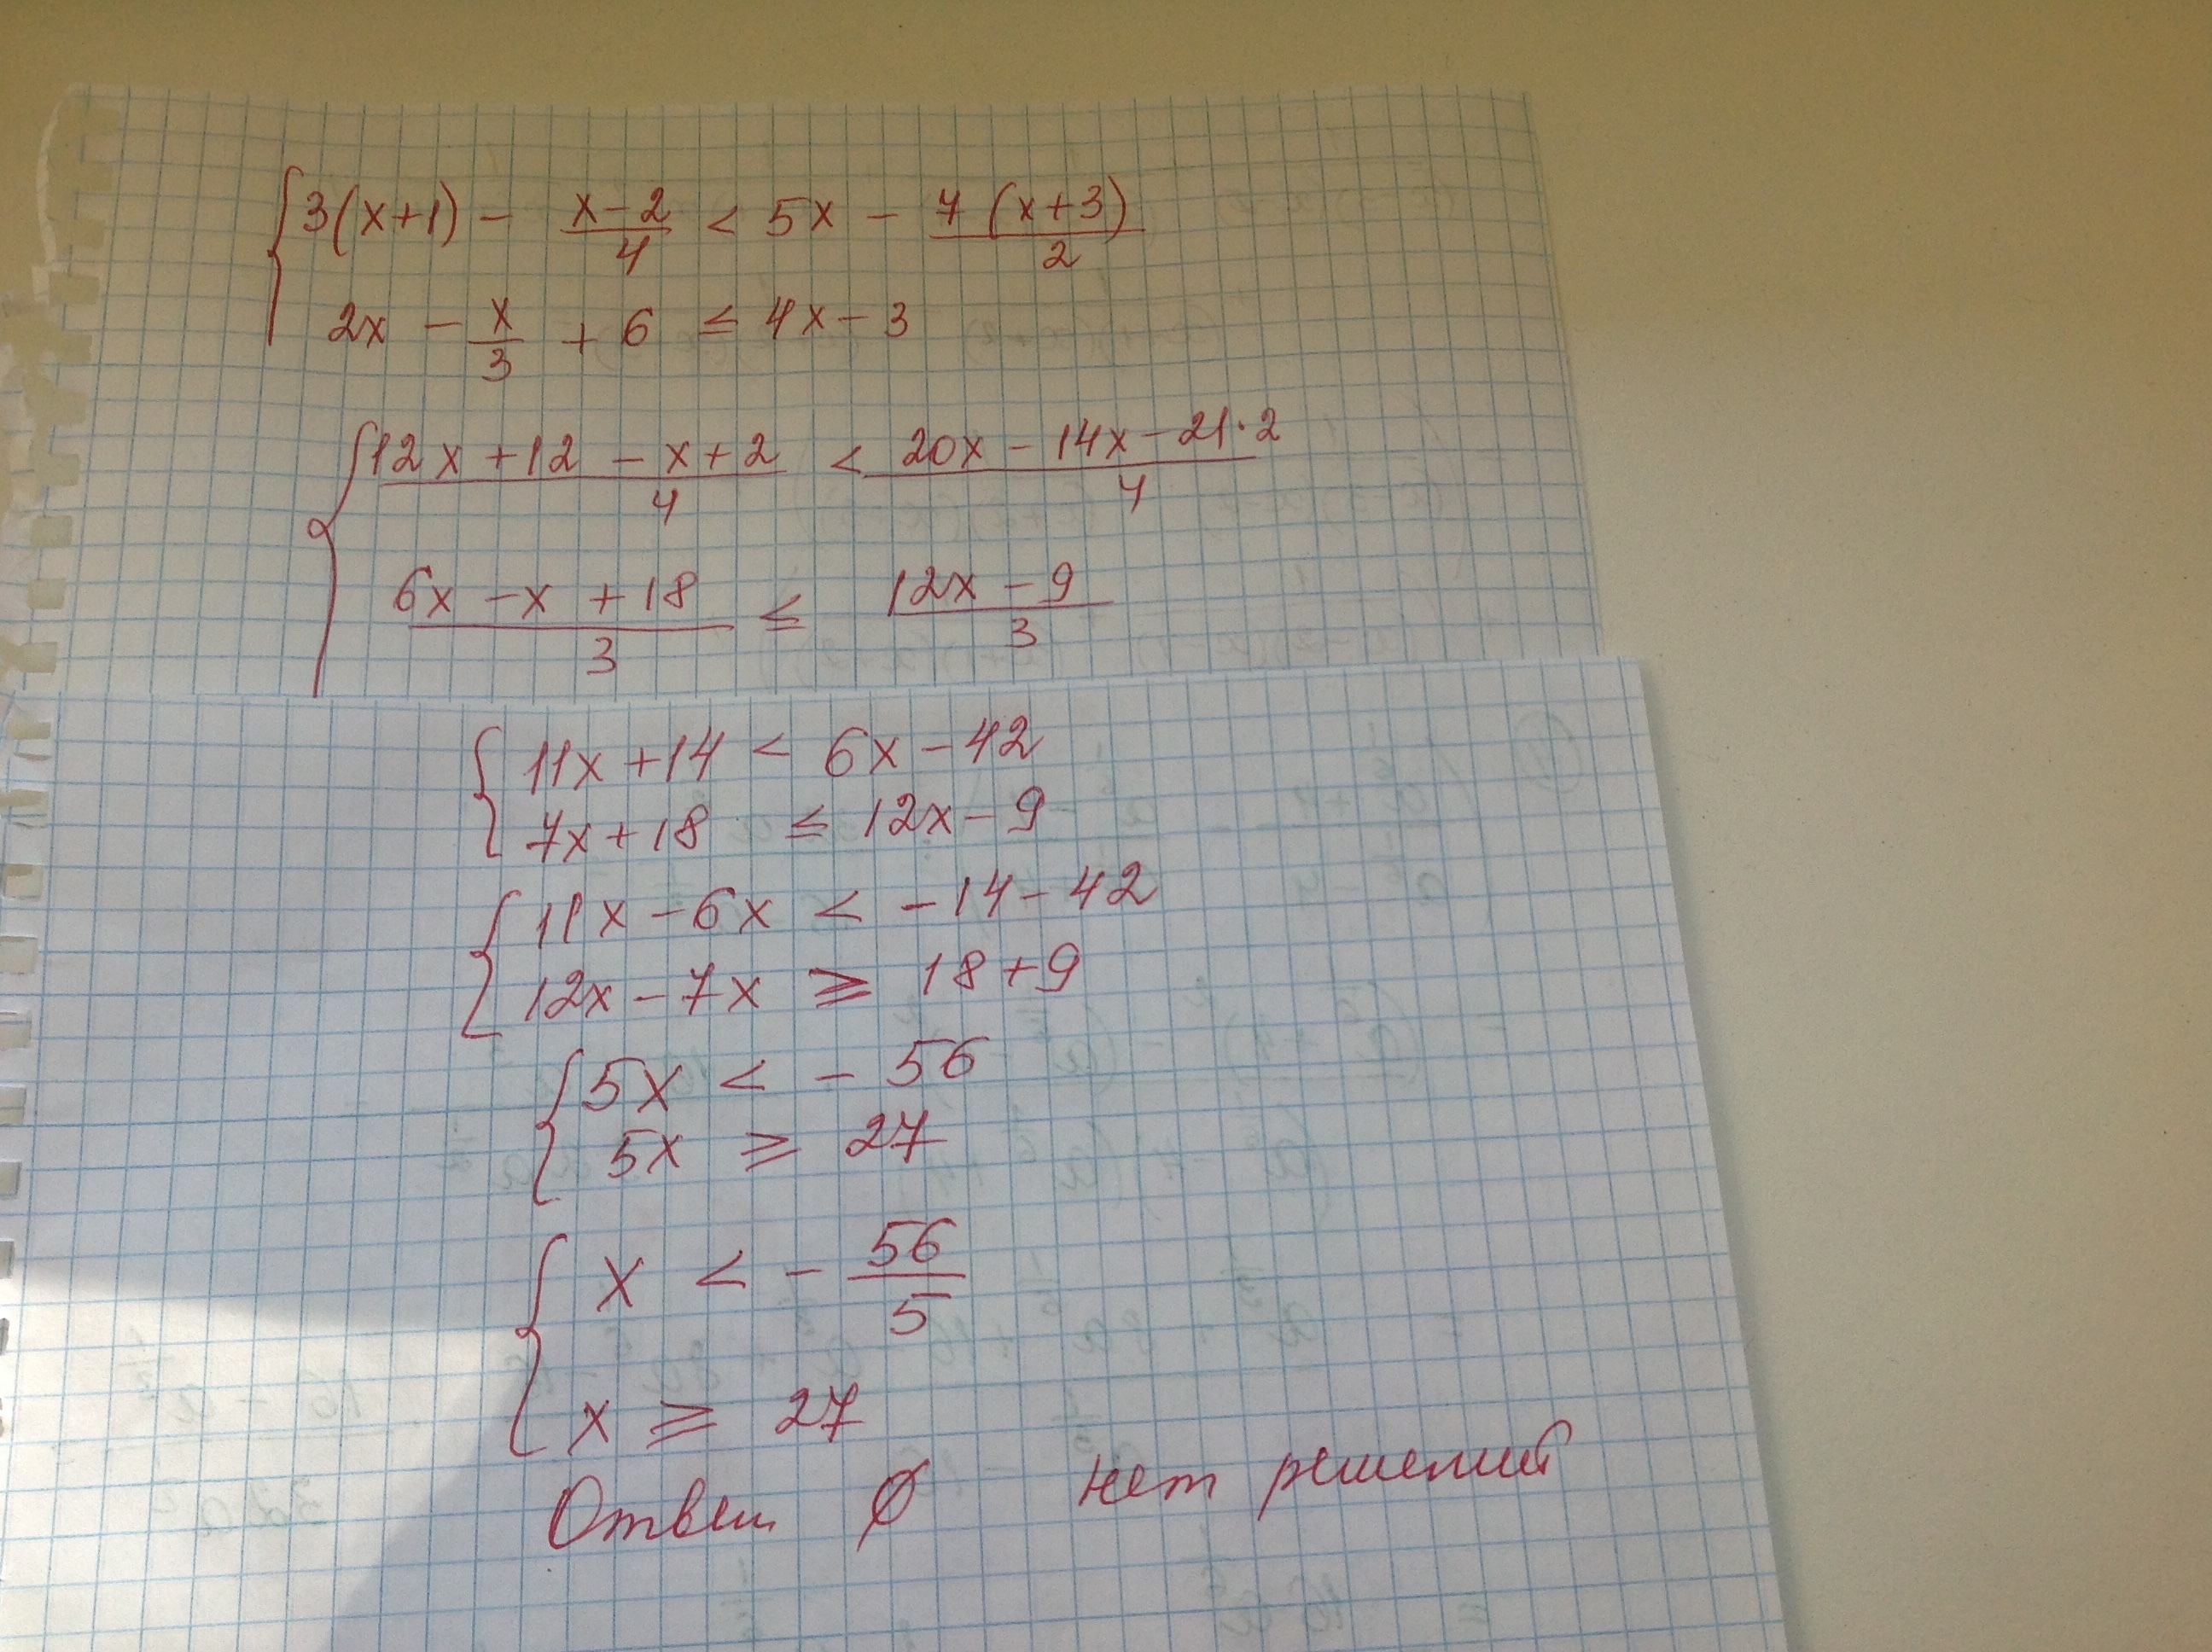 3(x+1) - x-2/4 < 5x - 7(x+3)/2
2x - x/3 + 6 ≤ 4x-3
12x+12-x+2/4 < 20x-14x-21·2/4
6x-x+18/3 ≤ 12x-9/3
11x+14 < 6x-42
7x+18 ≤ 12x-9
11x-6x < -14-42
12x-7x ≥ 18+9
5x < -56
5x ≥ 27
x < -56/5
x ≥ 27
Ответ Ø нет решений